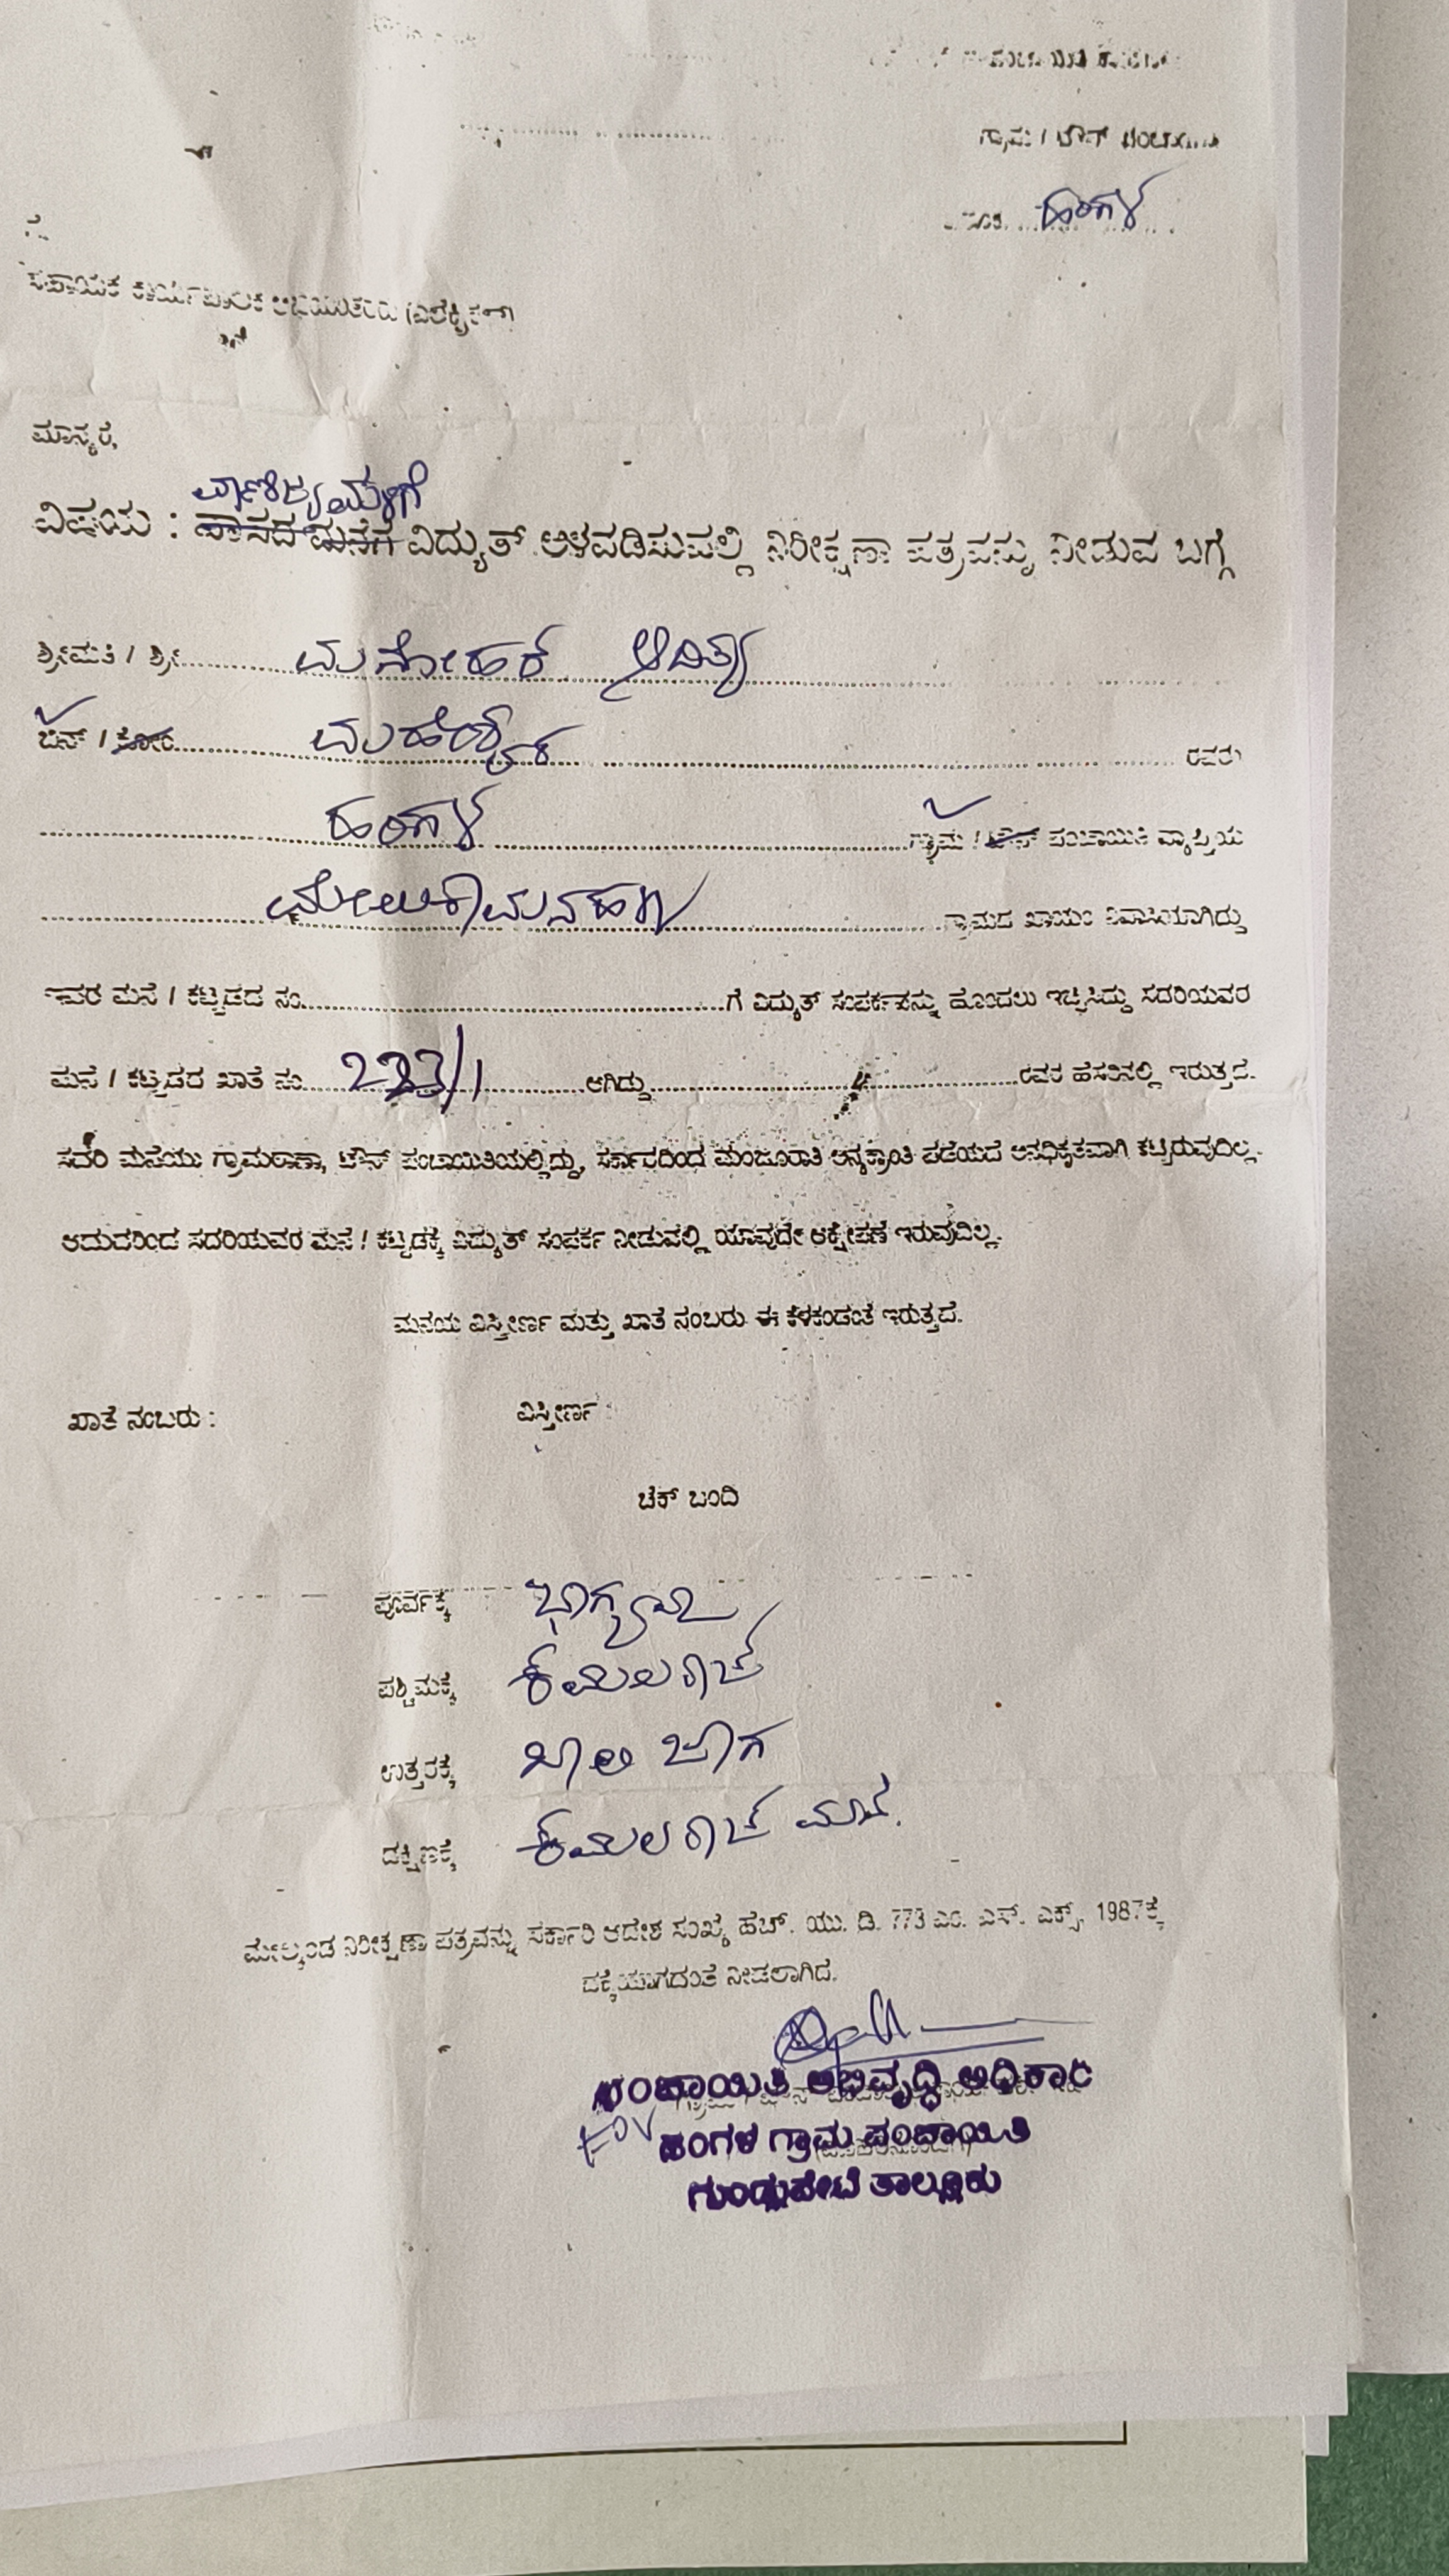 ಗ್ರಾಮ / ಟೌನ್ ಪಂಚಾಯಿತಿ
ಹಂಗಳ
ಸಹಾಯಕ ಕಾರ್ಯಪಾಲಕ ಅಭಿಯಂತರರು (ಎಲೆಕ್ಟ್ರಿಕಲ್)
ಮಾನ್ಯರೆ,
ವಾಣಿಜ್ಯ ಮಳಿಗೆ
ವಿಷಯ : ವಾಸದ ಮನೆಗೆ ವಿದ್ಯುತ್ ಅಳವಡಿಸುವಲ್ಲಿ ನಿರೀಕ್ಷಣಾ ಪತ್ರವನ್ನು ನೀಡುವ ಬಗ್ಗೆ
ಶ್ರೀಮತಿ / ಶ್ರೀ ಮನೋಹರ್ ಆದಿತ್ಯ
ಬಿನ್ / ಕೋಂ ಮಹೇಶ್ವರ್ ರವರು
ಹಂಗಳ ಗ್ರಾಮ / ಟೌನ್ ಪಂಚಾಯಿತಿ ವ್ಯಾಪ್ತಿಯ
ಗ್ರಾಮದ ಖಾಯಂ ನಿವಾಸಿಯಾಗಿದ್ದು
ಇವರ ಮನೆ / ಕಟ್ಟಡದ ನಂ. ಗೆ ವಿದ್ಯುತ್ ಸಂಪರ್ಕವನ್ನು ಹೊಂದಲು ಇಚ್ಛಿಸಿದ್ದು ಸದರಿಯವರ
ಮನೆ / ಕಟ್ಟಡದ ಖಾತೆ ನಂ. 223/1 ಆಗಿದ್ದು ರವರ ಹೆಸರಿನಲ್ಲಿ ಇರುತ್ತದೆ.
ಸದರಿ ಮನೆಯು ಗ್ರಾಮಠಾಣಾ, ಟೌನ್ ಪಂಚಾಯಿತಿಯಲ್ಲಿದ್ದು, ಸರ್ಕಾರದಿಂದ ಮಂಜೂರಾತಿ ಅನ್ಯಕ್ರಾಂತಿ ಪಡೆಯದೆ ಅನಧಿಕೃತವಾಗಿ ಕಟ್ಟಿರುವುದಿಲ್ಲ.
ಆದುದರಿಂದ ಸದರಿಯವರ ಮನೆ / ಕಟ್ಟಡಕ್ಕೆ ವಿದ್ಯುತ್ ಸಂಪರ್ಕ ನೀಡುವಲ್ಲಿ ಯಾವುದೇ ಆಕ್ಷೇಪಣೆ ಇರುವುದಿಲ್ಲ.
ಮನೆಯ ವಿಸ್ತೀರ್ಣ ಮತ್ತು ಖಾತೆ ನಂಬರು ಈ ಕೆಳಕಂಡಂತೆ ಇರುತ್ತದೆ.
ಖಾತೆ ನಂಬರು : ವಿಸ್ತೀರ್ಣ :
ಚೆಕ್ ಬಂದಿ
ಪೂರ್ವಕ್ಕೆ ಭಾಗ್ಯ
ಪಶ್ಚಿಮಕ್ಕೆ ಕಮಲರಾಜ್
ಉತ್ತರಕ್ಕೆ ಖಾಲಿ ಜಾಗ
ದಕ್ಷಿಣಕ್ಕೆ ಕಮಲರಾಜ್ ಮನೆ.
ಮೇಲ್ಕಂಡ ನಿರೀಕ್ಷಣಾ ಪತ್ರವನ್ನು ಸರ್ಕಾರಿ ಆದೇಶ ಸಂಖ್ಯೆ ಹೆಚ್. ಯು. ಡಿ. 773 ಎಂ. ಎನ್. ಎಕ್ಸ್. 1987ಕ್ಕೆ
ಧಕ್ಕೆಯಾಗದಂತೆ ನೀಡಲಾಗಿದೆ.
ಪಂಚಾಯಿತಿ ಅಭಿವೃದ್ಧಿ ಅಧಿಕಾರಿ
ಹಂಗಳ ಗ್ರಾಮ ಪಂಚಾಯಿತಿ
ಗುಂಡ್ಲುಪೇಟೆ ತಾಲ್ಲೂಕು